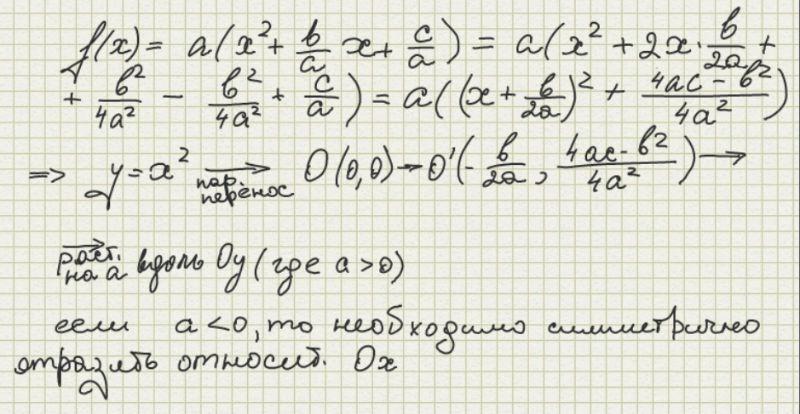 f(x) = a(x² + в/a x + c/a) = a(x² + 2x · в/2a +
+ в²/4a² - в²/4a² + c/a) = a((x + в/2a)² + (4ac - в²)/4a²)
=> y = x² → пар. перенос O(0,0) → O'(-в/2a, (4ac - в²)/4a²) →
→ раст. на a вдоль Oy (где a > 0)
если a < 0, то необходимо симметрично
отразить относит. Ox